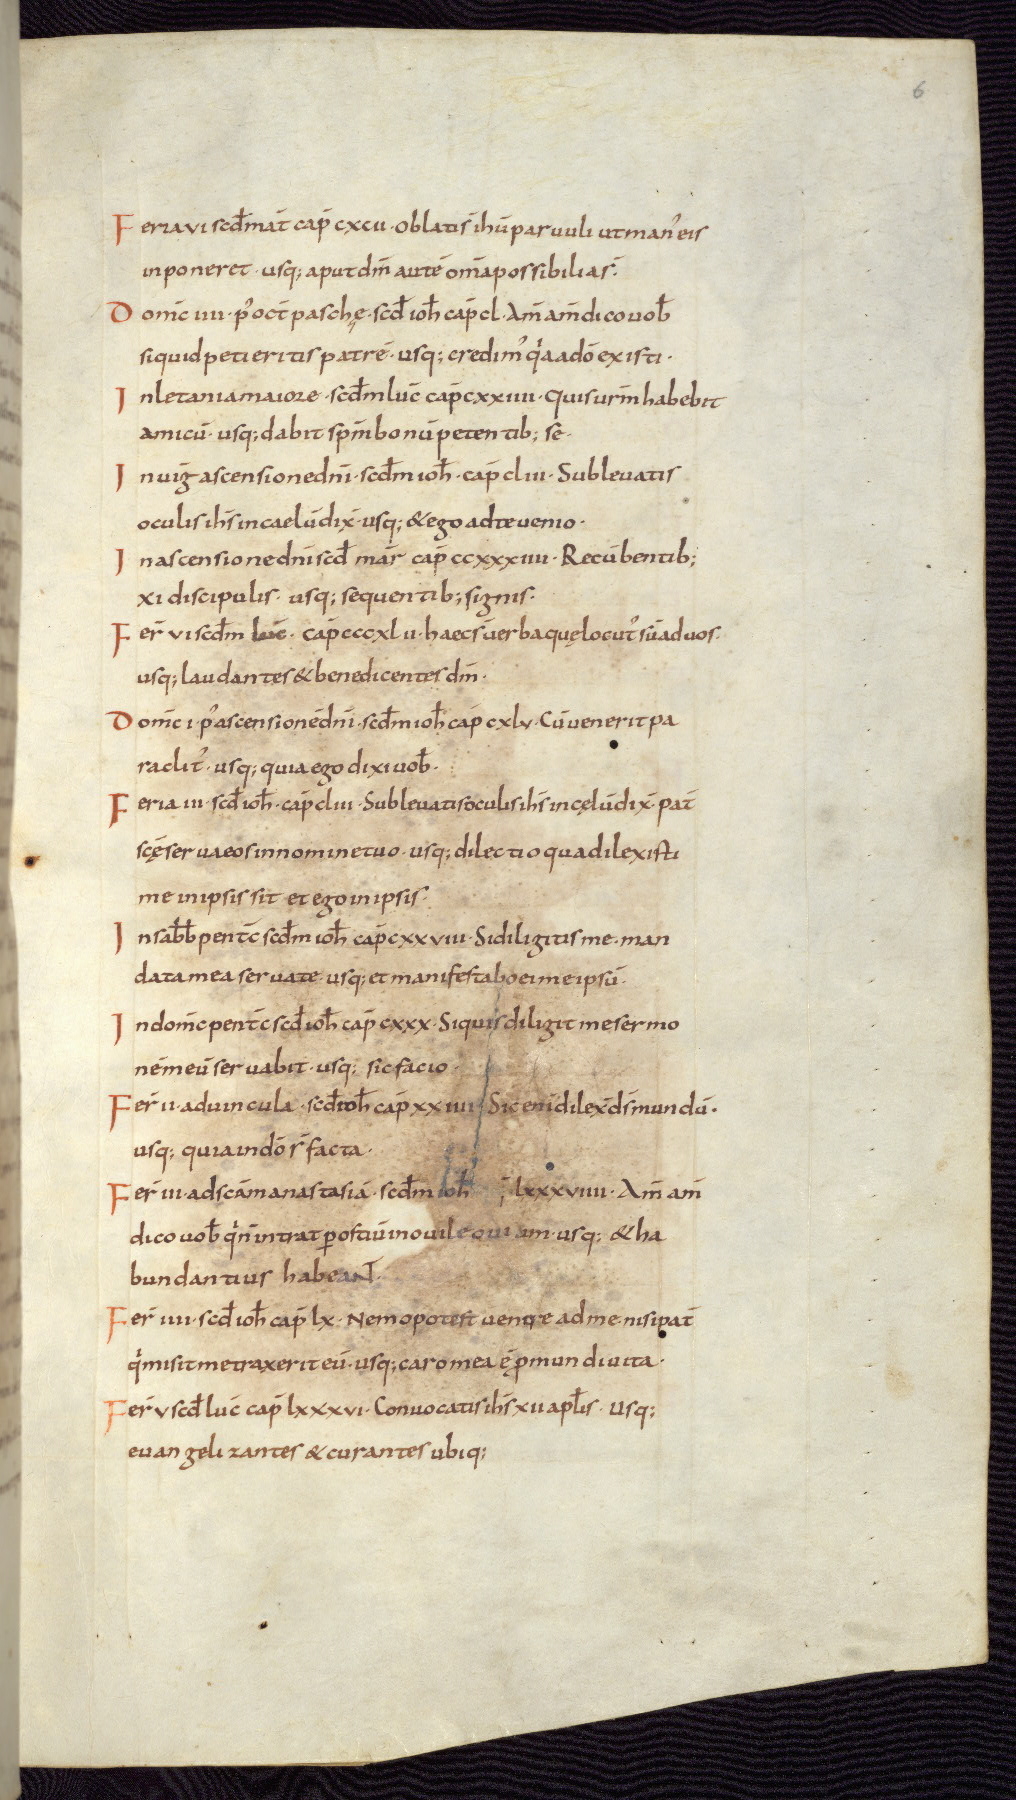 6
Feria vi scd̄ mat̄ cap̄ cxcii · Oblati s̄ ihū parvuli ut man᾽ eis
inponeret · usq; aput dm̄ autē om̄a possibilia s̄ ·
Domc̄ iiii · p᾽ oct̄ paschę · scd̄ ioh̄ cap̄ cl · Am̄ am̄ dico vob̄
siquid petieritis patrē · usq; credim᾽ q̓a a dō existi ·
In letania maiore · scd̄m luc̄ cap̄ cxxiiii · Quis ur̄m habebit
amicū · usq; dabit spm̄ bonū petentib; se ·
In viḡ ascensione dnī · scd̄m ioh̄ · cap̄ cliii · Sublevatis
oculis ihs̄ in caelū dix̄ · usq; & ego ad te venio ·
In ascensione dnī scd̄ mar̄ cap̄ ccxxxiiii · Recūbentib;
xi discipulis · usq; sequentib; signis ·
Fer̄ vi scd̄m luc̄ · cap̄ cccxlii · haec s̄ verba quę locut᾽ sū ad vos ·
usq; laudantes & benedicentes dm̄ ·
Domc̄ i · p᾽ ascensionē dnī · scd̄m ioh̄ cap̄ cxlv · Cū venerit pa
raclit᾽ · usq; quia ego dixi vob̄ ·
Feria iii · scd̄ ioh̄ · cap̄ cliii · Sublevatis oculis ihs̄ in cęlū dix̄ · pat̄
scę̄ serva eos in nomine tuo · usq; dilectio qua dilexisti
me in ipsis sit et ego in ipsis ·
In sabb̄ pentc̄ scd̄m ioh̄ cap̄ cxxviii · Si diligitis me · man
data mea servate · usq; et manifestabo ei me ipsū ·
In domc̄ pentc̄ scd̄ ioh̄ cap̄ cxxx · Si quis diligit me sermo
nē meū servabit · usq; sic facio ·
Fer̄ ii · ad vincula · scd̄ ioh̄ cap̄ xxiiii · Sic enī dilex̄ ds̄ mundū ·
usq; quia in dō s̄ facta ·
Fer̄ iii · ad scām anastasiā · scd̄m ioh̄ lxxxviiii · Am̄ am̄
dico vob̄ q̓ n̄ intrat p ostiū in ovile ovium · usq; & ha
bundantius habeant ·
Fer̄ iiii · scd̄ ioh̄ cap̄ lx · Nemo potest venire ad me · nisi pat̄
q̓ misit me traxerit eū · usq; caro mea ę̄ p mundi vita ·
Fer̄ v scd̄ luc̄ cap̄ lxxxvi · Convocatis ihs̄ xii apl̄is · Usq;
evangelizantes & curantes ubiq;